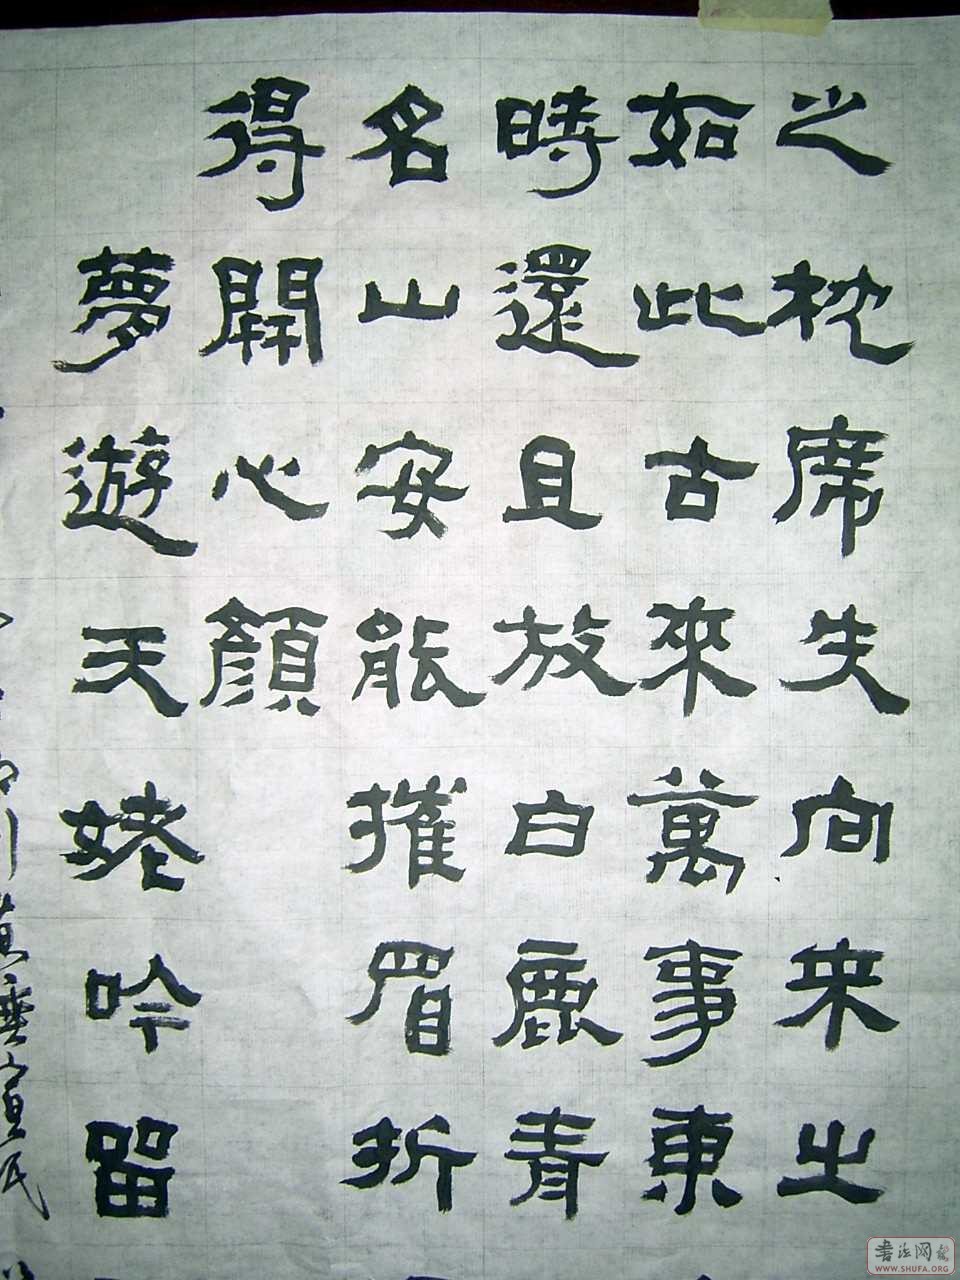 之枕席失向来之
如此古來萬事東
時還且放白鹿青
名山安能摧眉折
得開心顏
夢遊天姥吟留
書法网
WWW.SHUFA.ORG